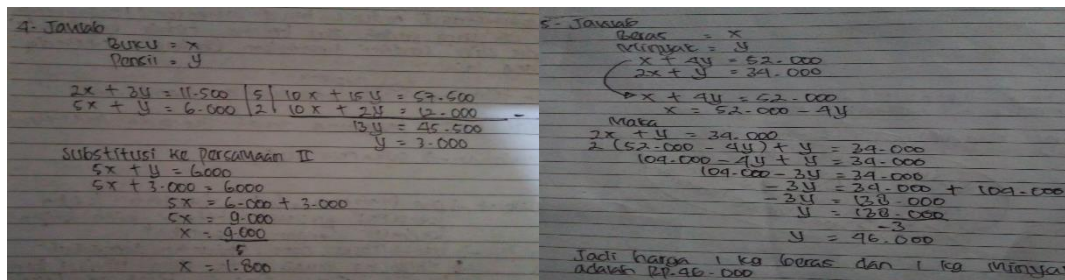 4- Jawab
Buku = x
Pensil = y
2x + 3y = 11.500 | 5 | 10x + 15y = 57.500
5x + y = 6.000 | 2 | 10x + 2y = 12.000 -
13y = 45.500
y = 3.000
Substitusi ke persamaan II
5x + y = 6000
5x + 3.000 = 6000
5x = 6.000 + 3.000
5x = 9.000
x = 9.000
5
x = 1.800
5- Jawab
Beras = x
Minyak = y
x + 4y = 52.000
2x + y = 34.000
x + 4y = 52.000
x = 52.000 - 4y
Maka
2x + y = 34.000
2 (52.000 - 4y) + y = 34.000
104.000 - 4y + y = 34.000
104.000 - 3y = 34.000
-3y = 34.000 + 104.000
-3y = 138.000
y = 138.000
-3
y = 46.000
Jadi harga 1 kg beras dan 1 kg minyak
adalah Rp.46.000